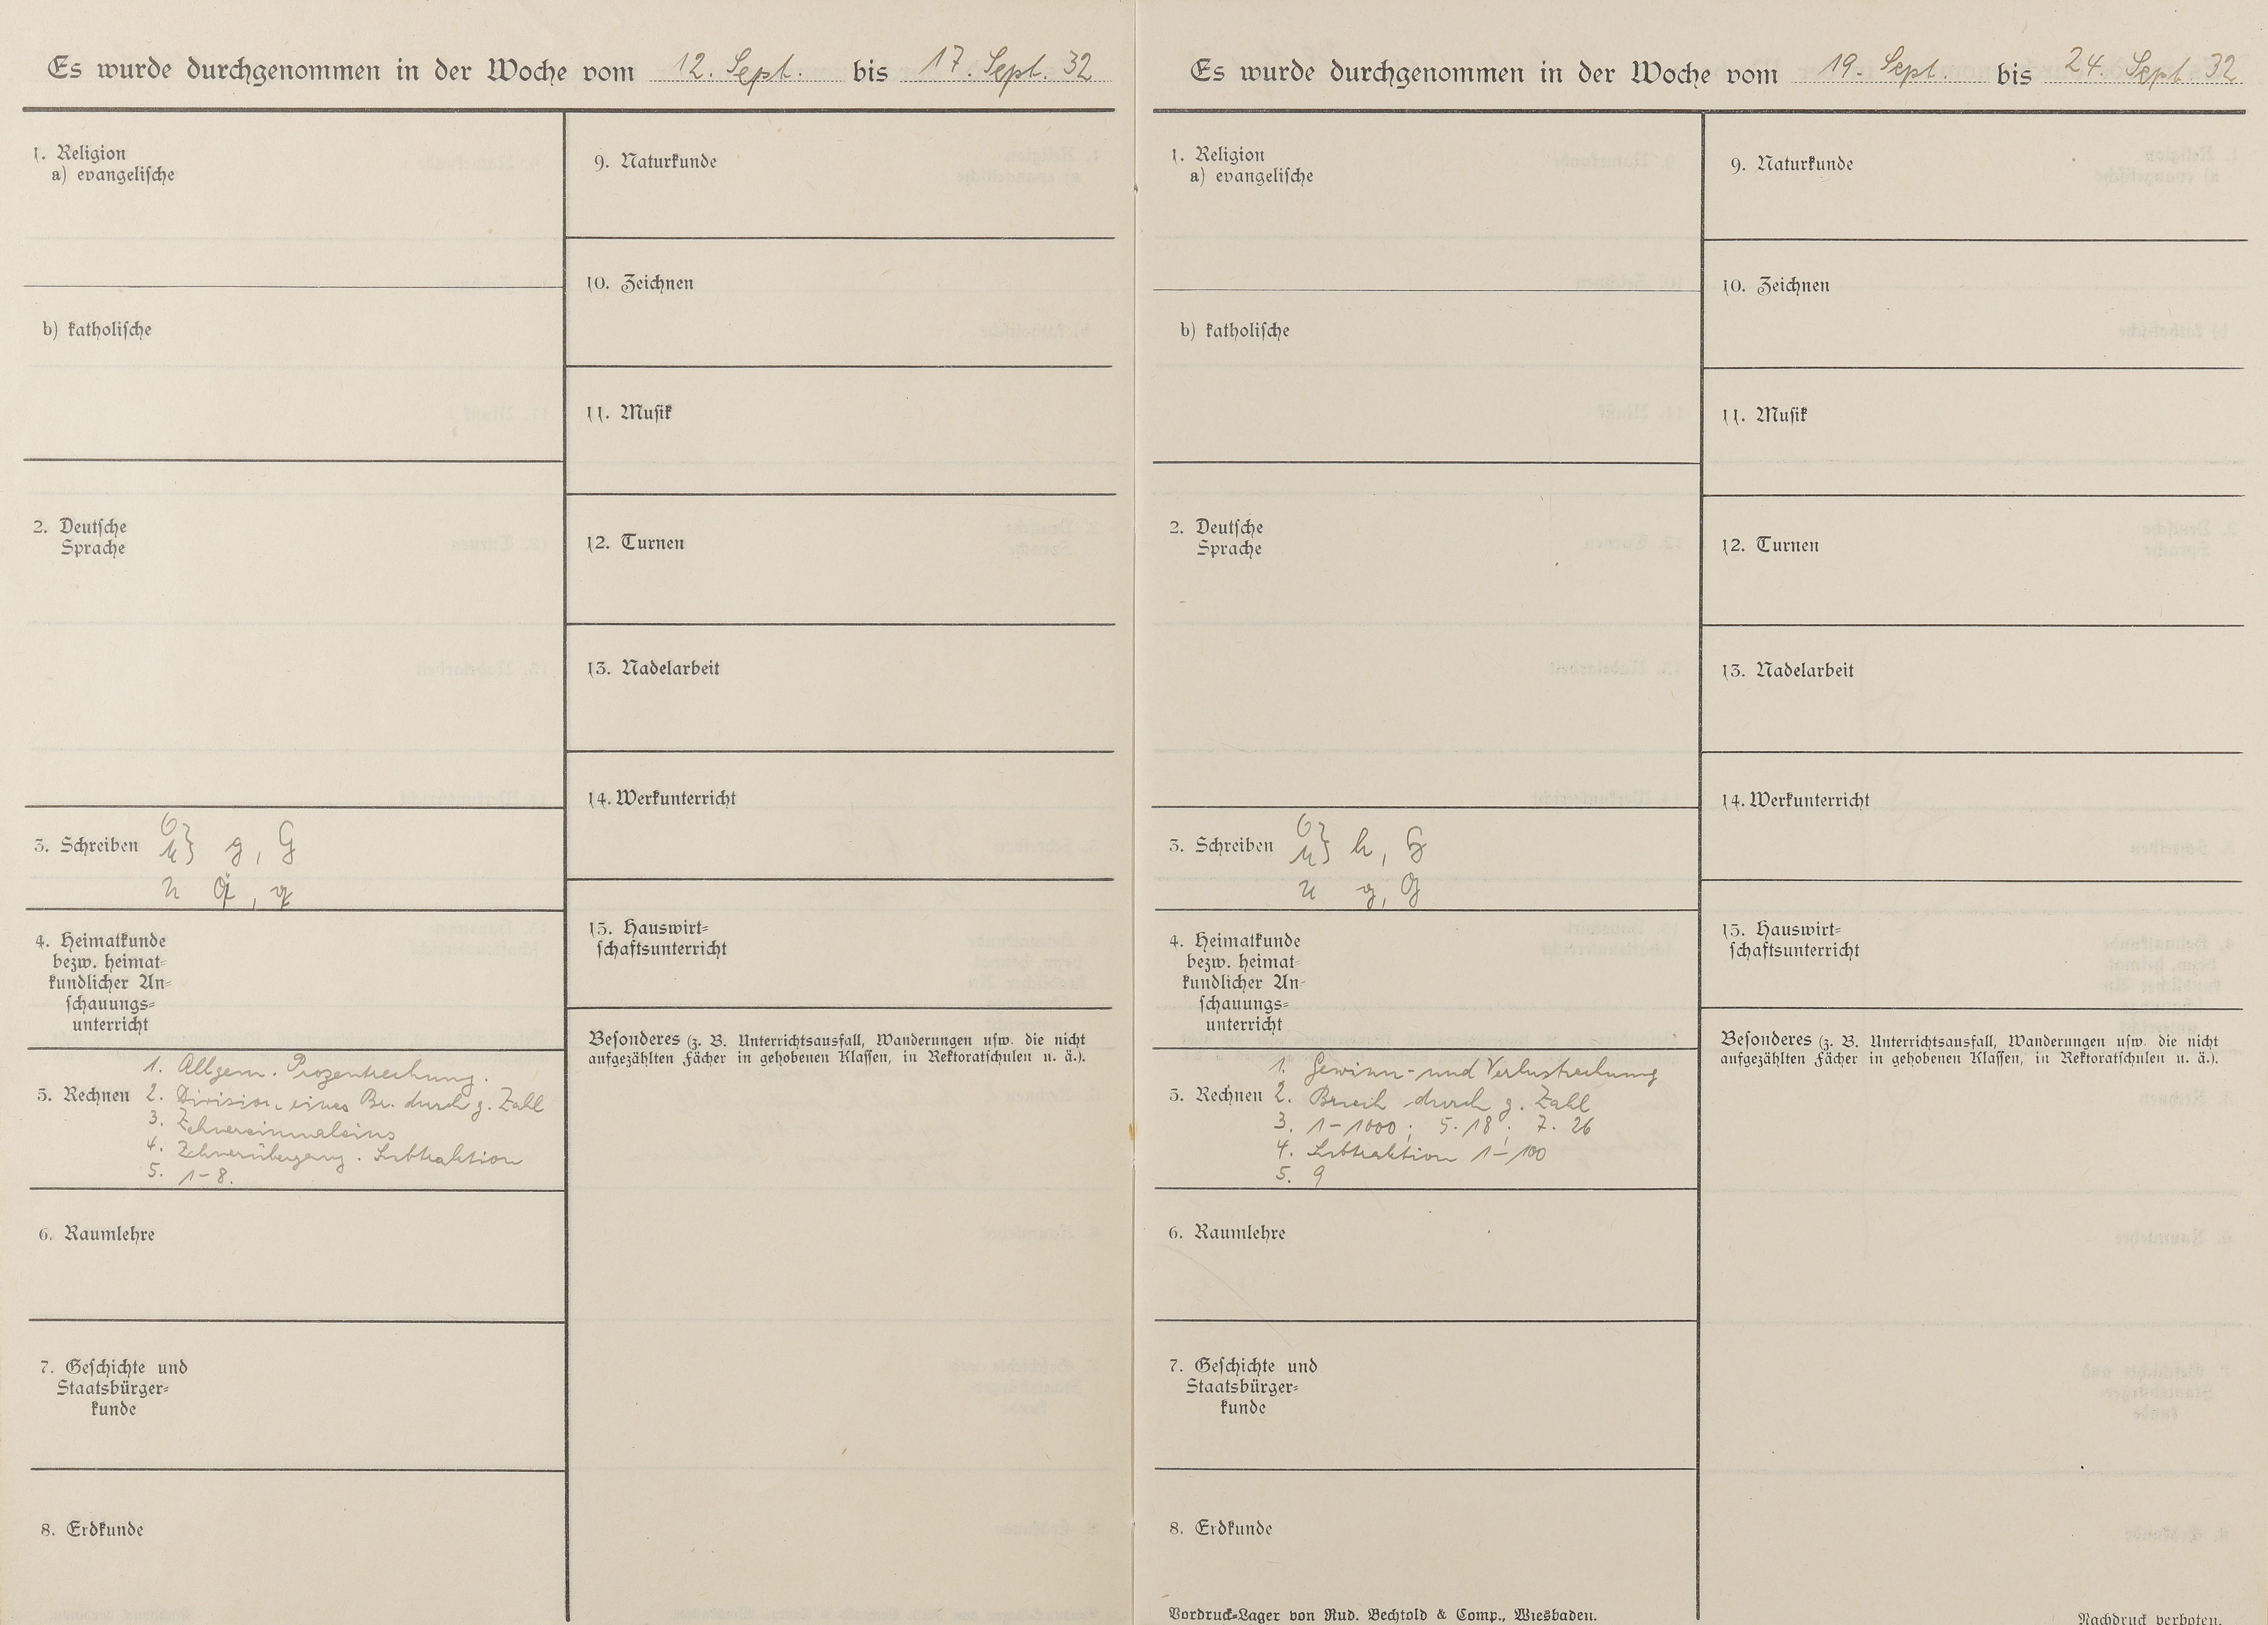 Es wurde durchgenommen in der Woche vom 12. Sept. bis 17. Sept. 32
1. Religion
a) evangelische
b) katholische
2. Deutsche
Sprache
3. Schreiben
O } g, G
M
U
4. Heimatkunde
bezw. heimat-
kundlicher An-
schauungs-
unterricht
5. Rechnen
1. Allgem. Prozentrechnung.
2. Division eines Br. durch g. Zahl
3. Zehnereinmaleins
4. Zehnerübergang. Subtraktion
5. 1-8.
6. Raumlehre
7. Geschichte und
Staatsbürger-
kunde
8. Erdkunde
9. Naturkunde
10. Zeichnen
11. Musik
12. Turnen
13. Nadelarbeit
14. Werkunterricht
15. Hauswirt-
schaftsunterricht
Besonderes (z. B. Unterrichtsausfall, Wanderungen usw. die nicht
aufgezählten Fächer in gehobenen Klassen, in Rektoratschulen u. ä.).
Es wurde durchgenommen in der Woche vom 19. Sept. bis 24. Sept 32
1. Religion
a) evangelische
b) katholische
2. Deutsche
Sprache
3. Schreiben
O } h,
M
U
4. Heimatkunde
bezw. heimat-
kundlicher An-
schauungs-
unterricht
5. Rechnen
1. Gewinn- und Verlustrechnung
2. Bruch durch g. Zahl
3. 1-1000; 5·18; 7·26
4. Subtraktion 1-100
5. 9
6. Raumlehre
7. Geschichte und
Staatsbürger-
kunde
8. Erdkunde
Vordruck-Lager von Rud. Bechtold & Comp., Wiesbaden.
9. Naturkunde
10. Zeichnen
11. Musik
12. Turnen
13. Nadelarbeit
14. Werkunterricht
15. Hauswirt-
schaftsunterricht
Besonderes (z. B. Unterrichtsausfall, Wanderungen usw. die nicht
aufgezählten Fächer in gehobenen Klassen, in Rektoratschulen u. ä.).
Nachdruck verboten.